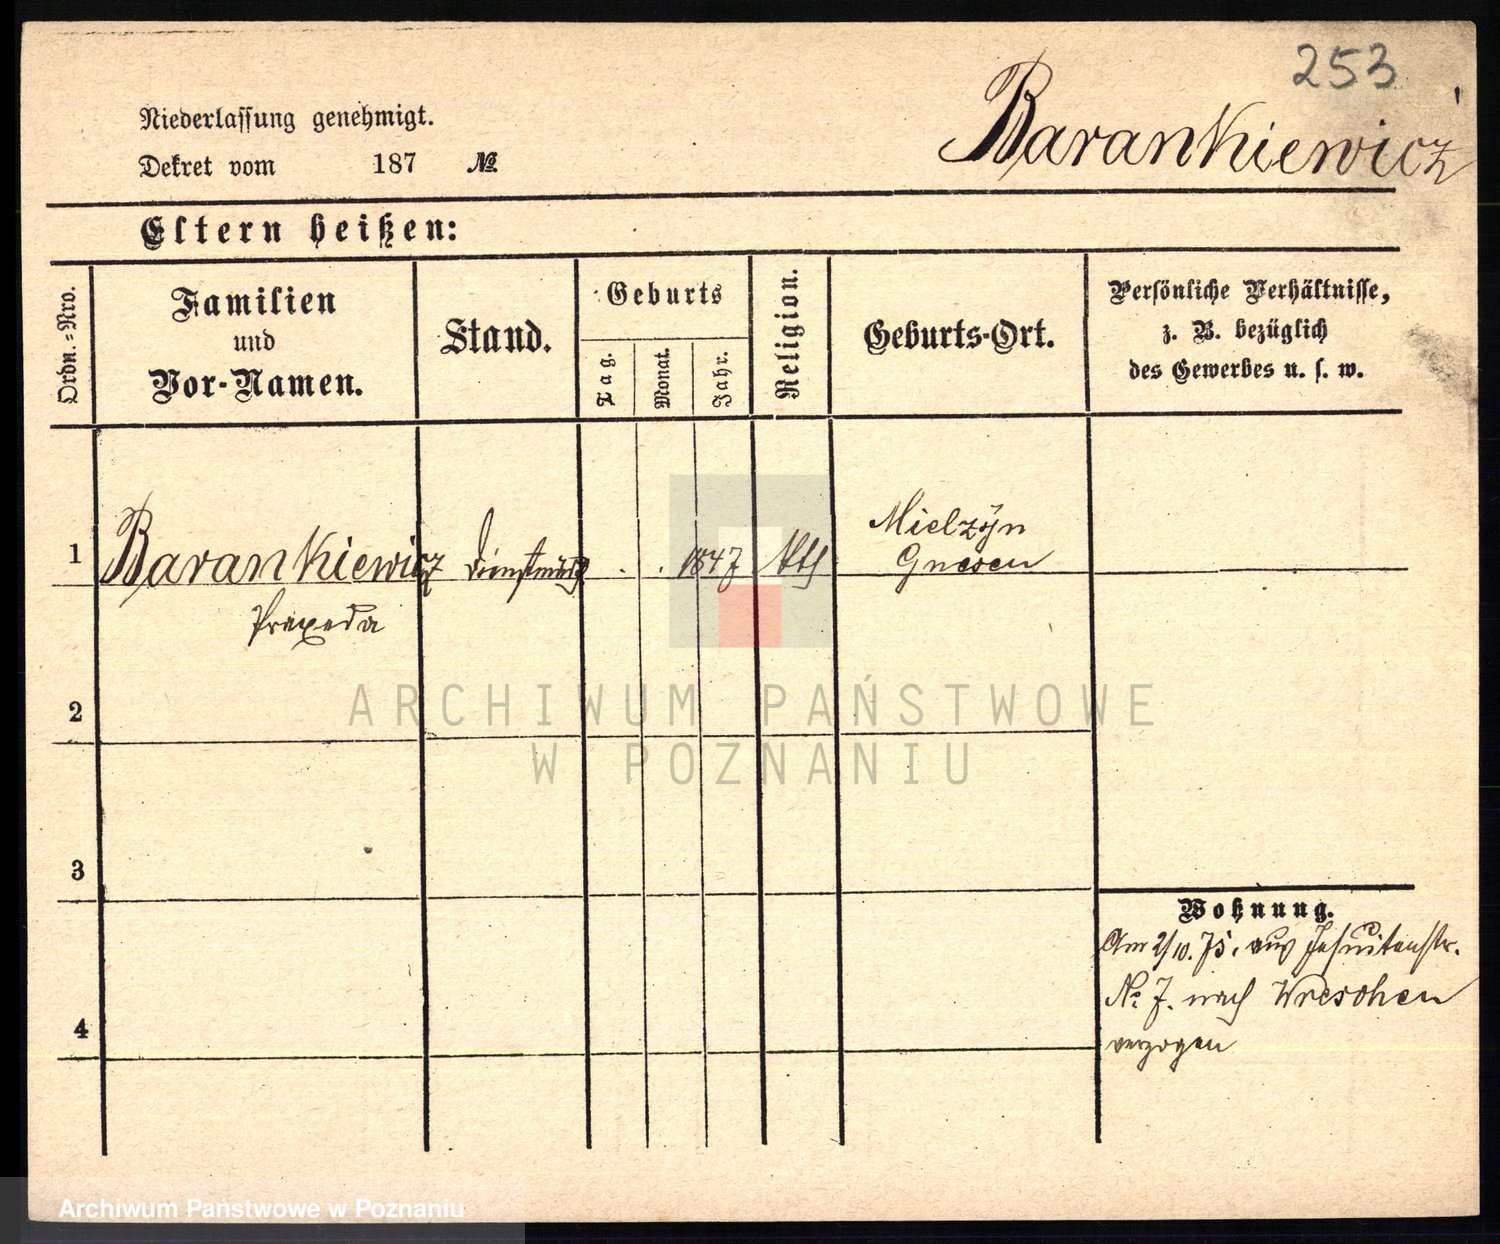 253
Barankiewicz
Niederlassung genehmigt.
Dekret vom 187 No.
Eltern heißen:
Ordn.=Nro.
Familien
und
Vor-Namen.
Stand.
Geburts
Tag.
Monat.
Jahr.
Religion.
Geburts-Ort.
Persönliche Verhältnisse,
z. B. bezüglich
des Gewerbes u. s. w.
1 Barankiewicz 1847 Kth Mielzyn
Gnesen
Praxeda
2
3
4
Wohnung.
Am 2/10. 75. aus Jesuitenstr.
No 7. nach Wreschen
verzogen
ARCHIWUM PAŃSTWOWE
W POZNANIU
Archiwum Państwowe w Poznaniu